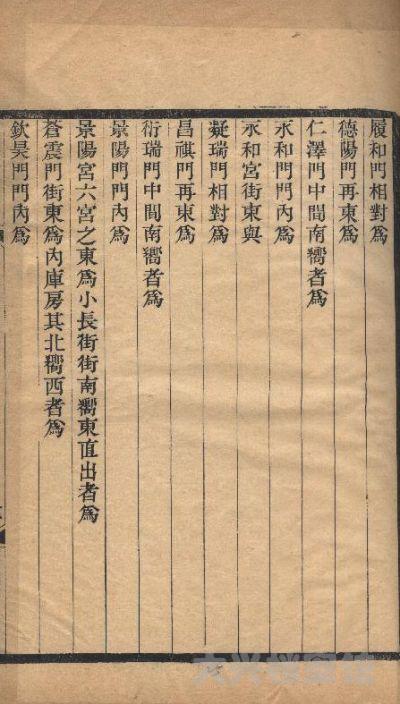 履和門相對爲
德陽門再東爲
仁澤門中間南嚮者爲
永和門門內爲
永和宮街東與
凝瑞門相對爲
昌祺門再東爲
衍瑞門中間南嚮者爲
景陽門門內爲
景陽宮六宮之東爲小長街街南嚮東直出者爲
蒼震門街東爲內庫房其北嚮西者爲
欽昊門門內爲